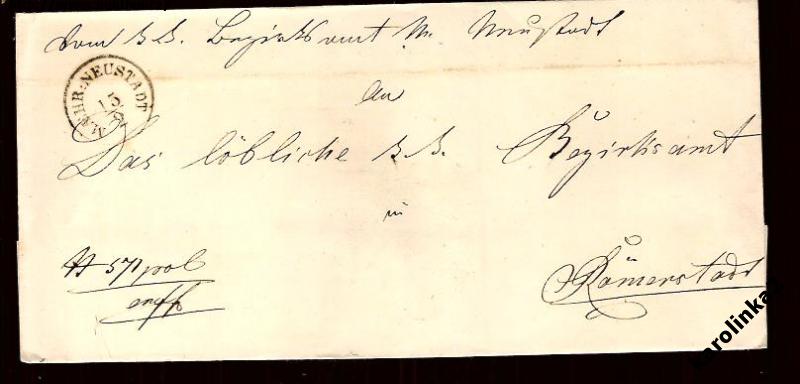 Vom k.k. Bezirksamt M. Neustadt
MÆHR: NEUSTADT
15
An
Das löbliche k.k. Bezirksamt
in
N 571 pol
Römerstadt
karolinka